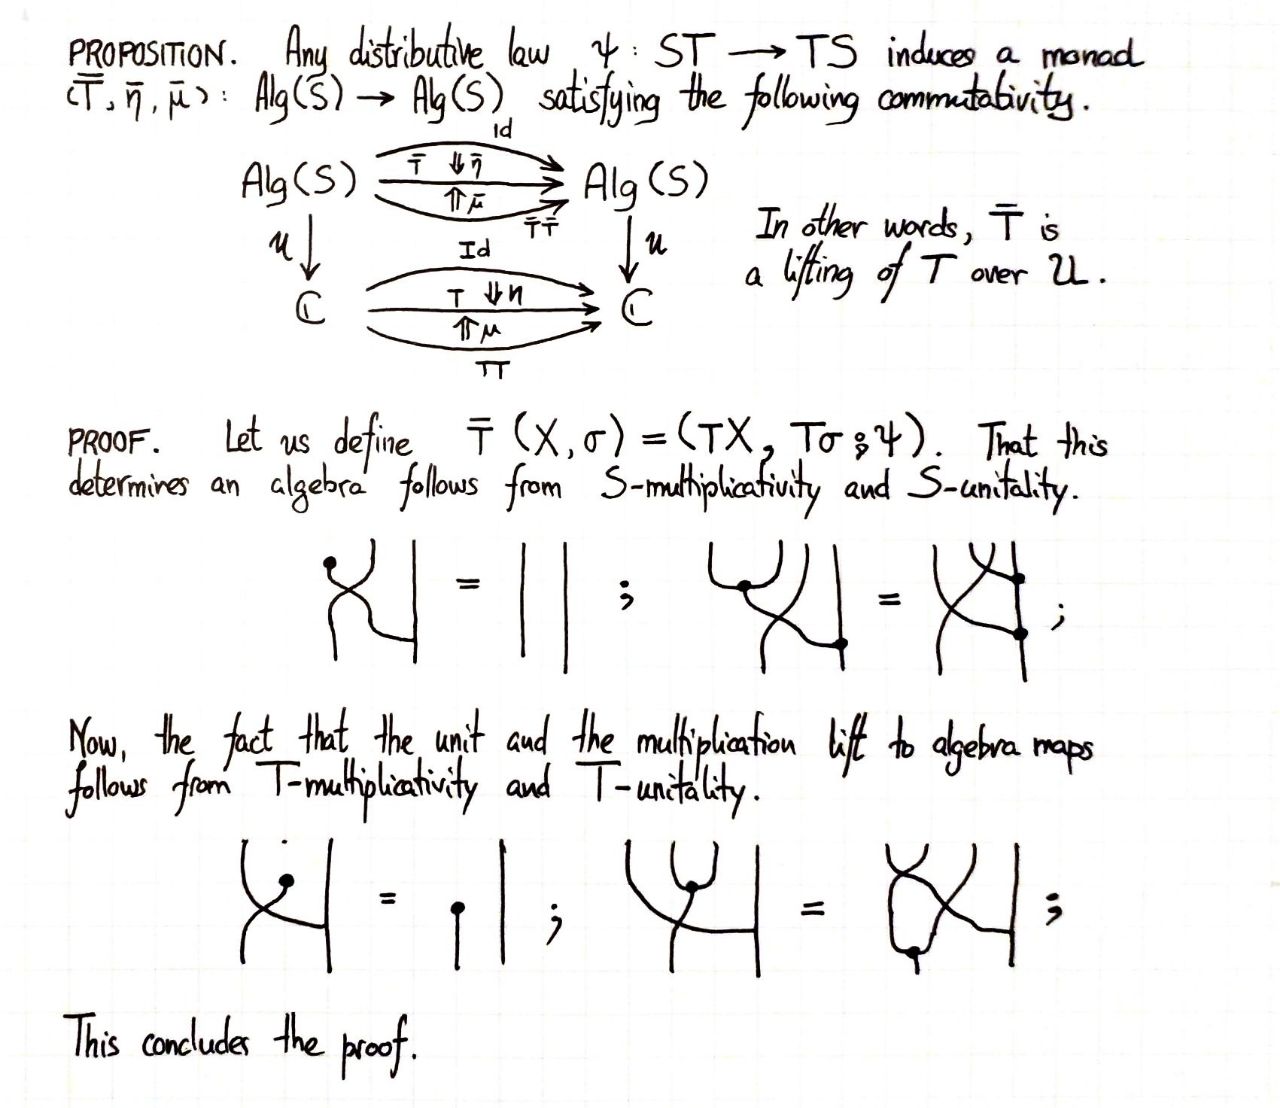 PROPOSITION. Any distributive law ψ : ST → TS induces a monad
(T̄, η̄, μ̄) : Alg(S) → Alg(S) satisfying the following commutativity.
Id
Alg(S) T̄ ⇓η̄ Alg(S)
⇑μ̄
T̄T̄
u Id u
ℂ T ⇓η ℂ
⇑μ
TT
In other words, T̄ is
a lifting of T over U.
PROOF. Let us define T̄ (X, σ) = (TX, Tσ ⨾ ψ). That this
determines an algebra follows from S-multiplicativity and S-unitality.
= ; = ;
Now, the fact that the unit and the multiplication lift to algebra maps
follows from T-multiplicativity and T-unitality.
= ; = ;
This concludes the proof.